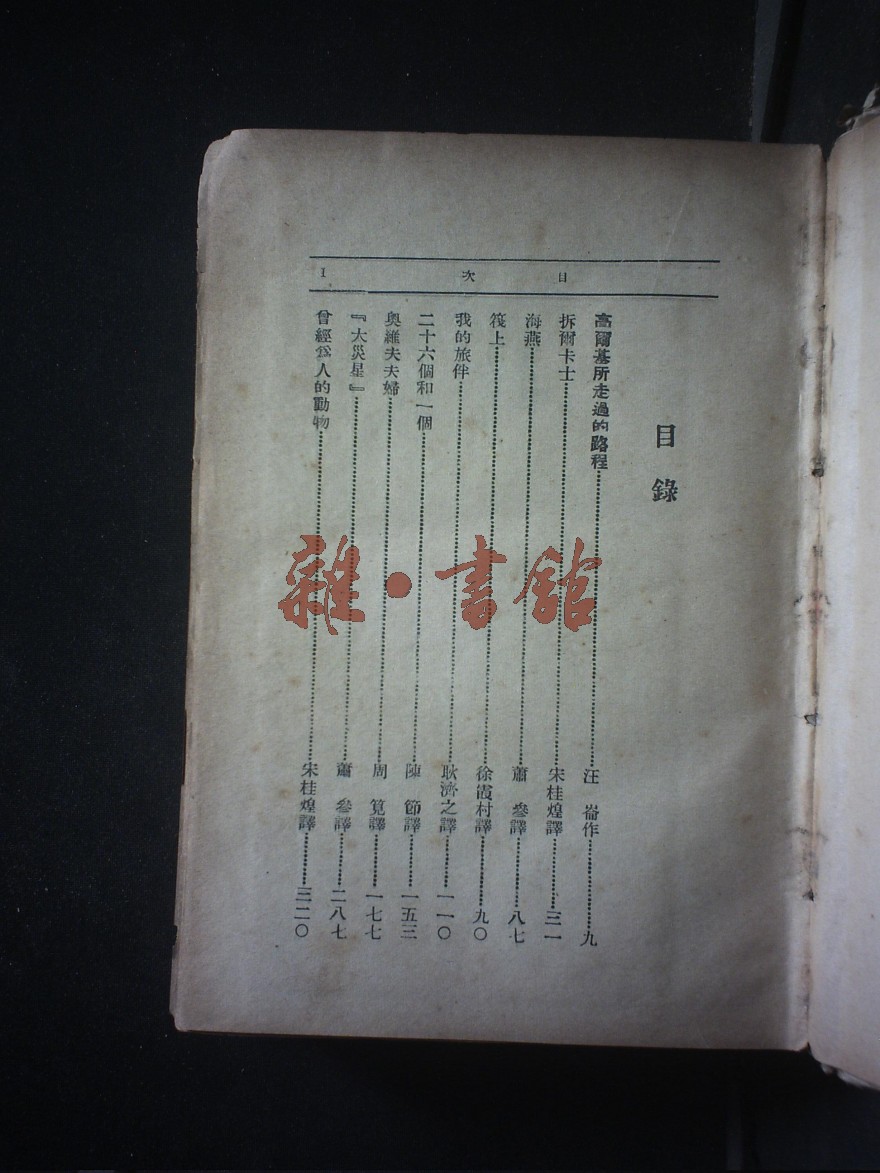 目次 1
目錄
高爾基所走過的路程……汪崙作……九
拆爾卡士……宋桂煌譯……三一
海燕……蕭參譯……八七
筏上……徐霞村譯……九〇
我的旅伴……耿濟之譯……一一〇
二十六個和一個……陳節譯……一五三
奧維夫夫婦……周筧譯……一七七
『大災星』……蕭參譯……二八七
曾經爲人的動物……宋桂煌譯……三二〇
雜·書館